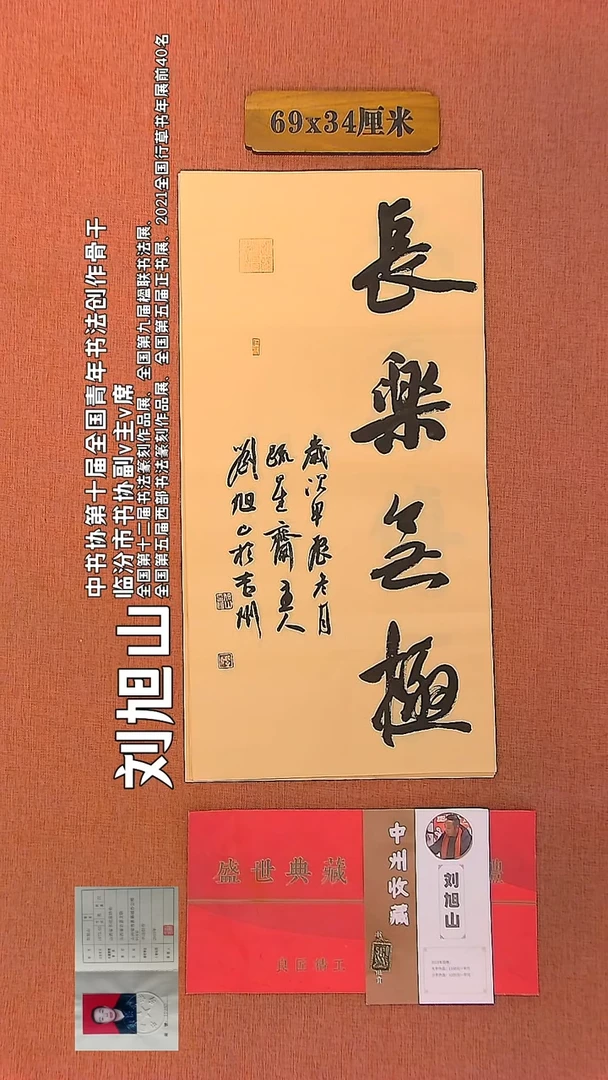 69x34厘米
中书协第十届全国青年书法创作骨干
临汾市书协副v主v席
全国第十二届书法篆刻作品展、全国第九届楹联书法展、
全国第五届西部书法篆刻作品展、全国第五届正书展、2021全国行草书年展前40名
刘旭山
長樂無極
歲次甲辰冬月
疏星齋主人
劉旭山於吉州
盛世典藏
中州收藏
刘旭山